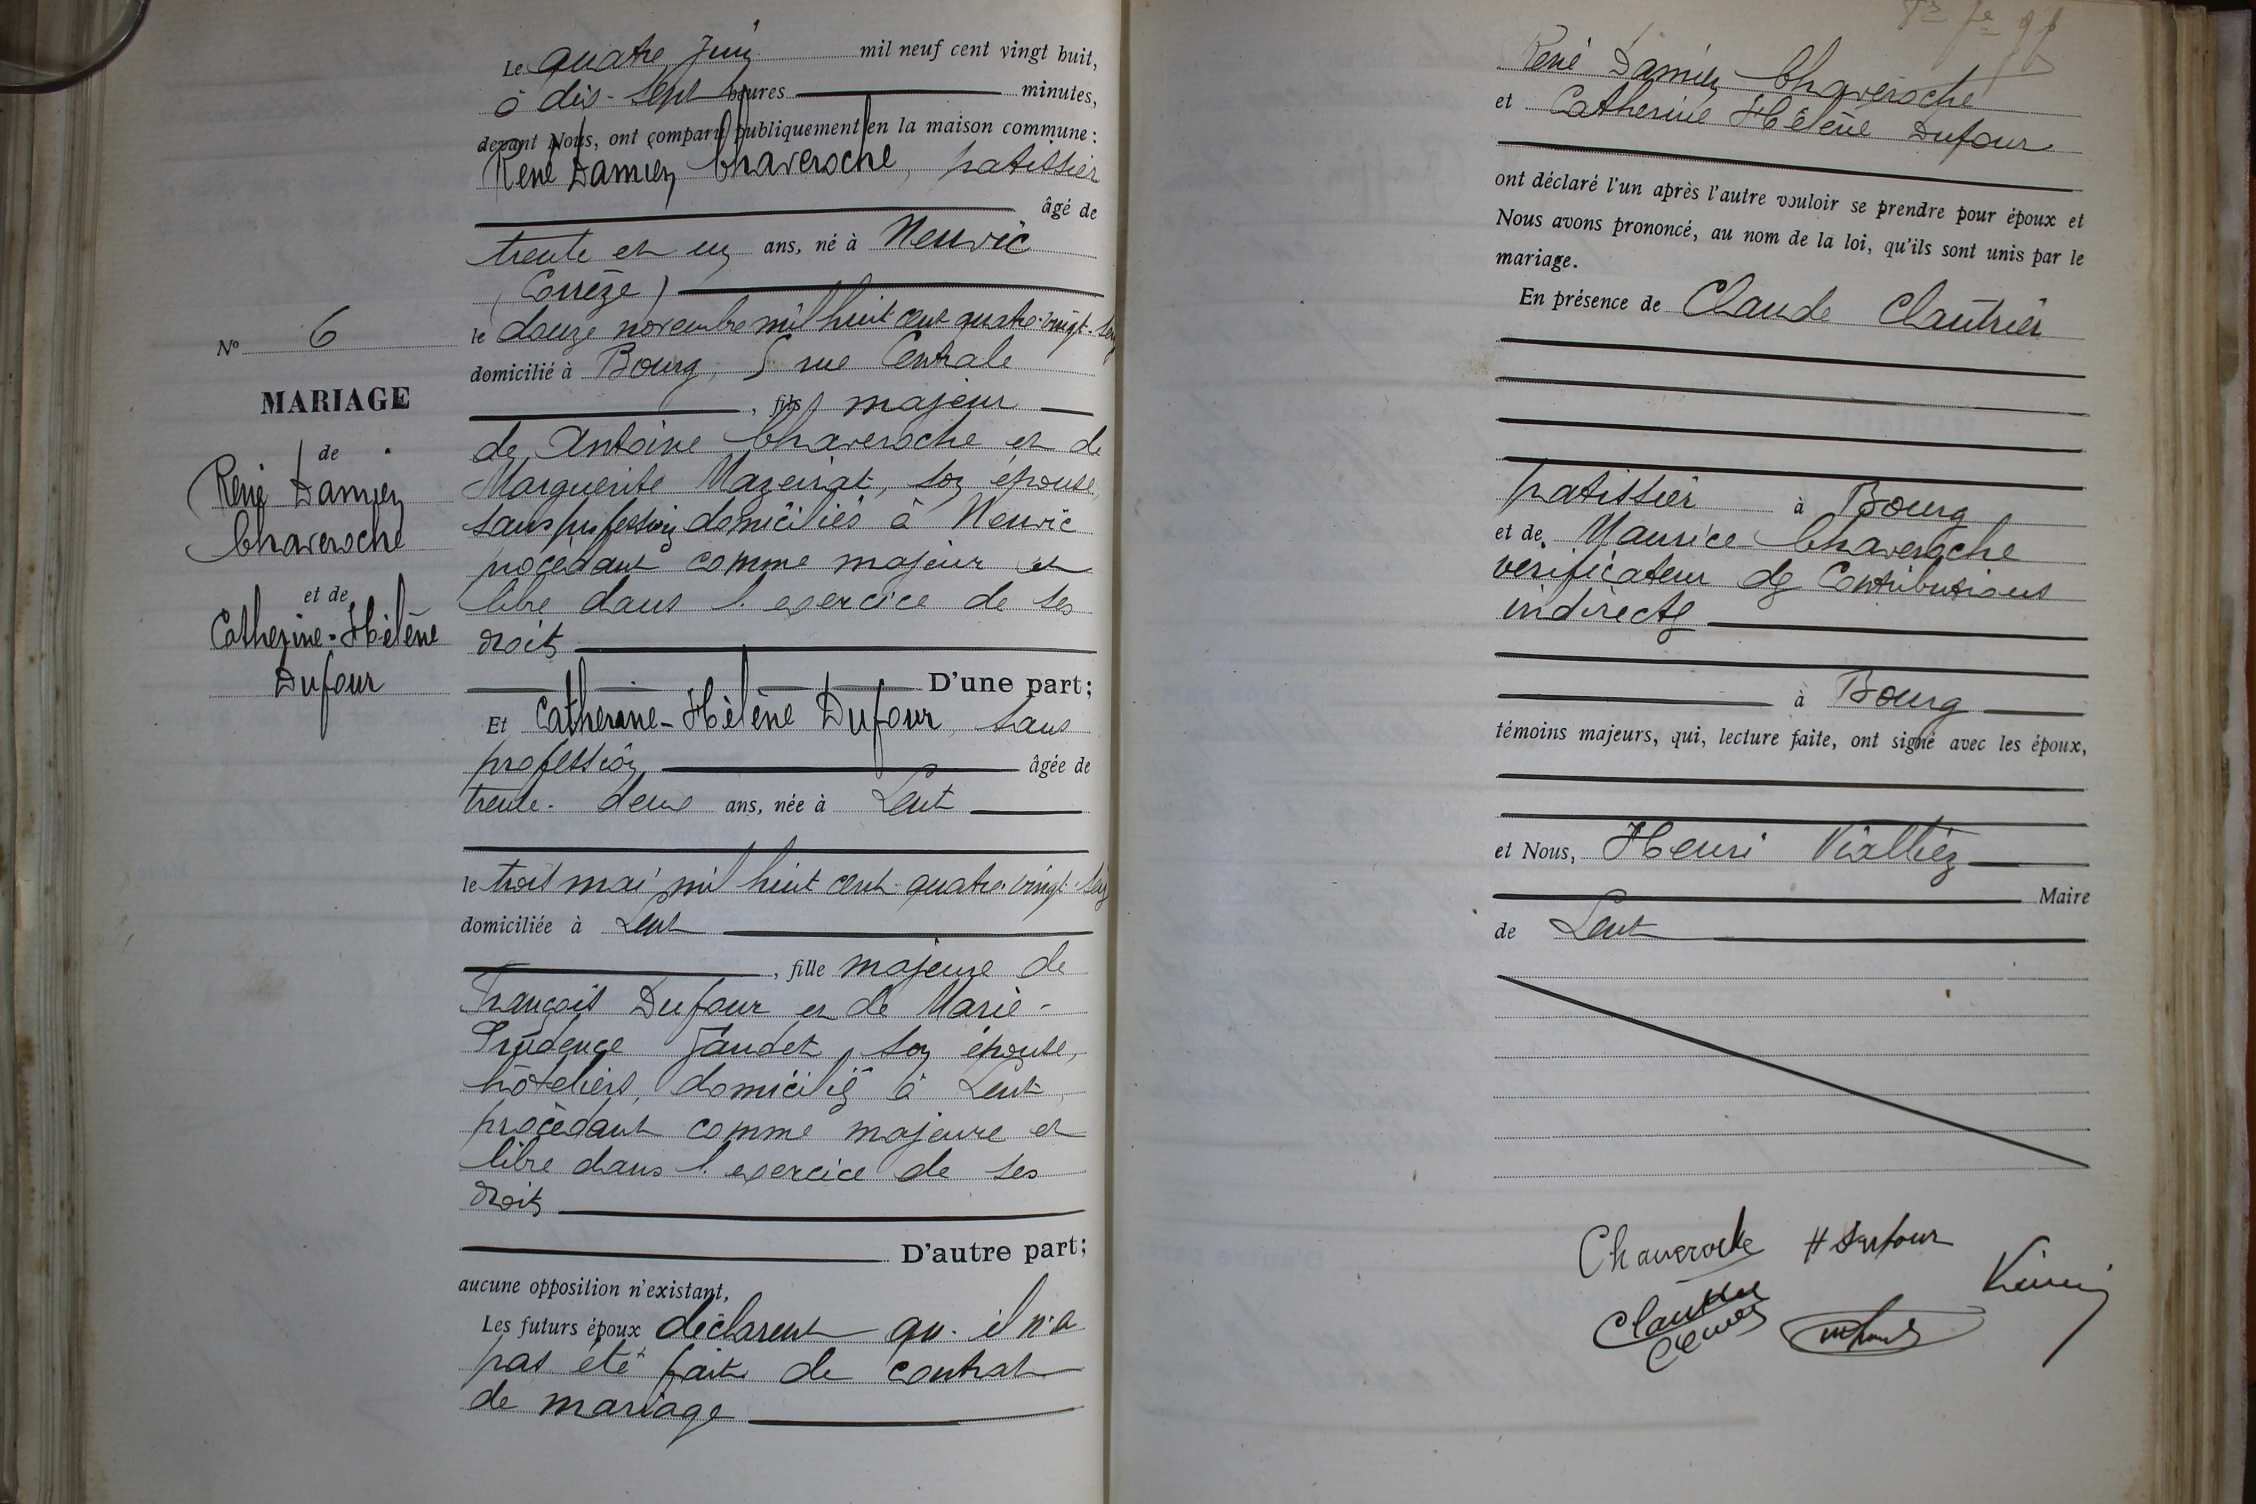 N° 6
MARIAGE
de
René Damien
Chaveroche
et de
Catherine-Hélène
Dufour
Le quatre Juin mil neuf cent vingt huit,
à dix-sept heures minutes,
devant Nous, ont comparu publiquement en la maison commune :
René Damien Chaveroche, patissier
âgé de
trente et un ans, né à Neuvic
(Corrèze)
le douze novembre mil huit cent quatre-vingt-seize
domicilié à Bourg, 5 rue Centrale
, fils majeur
de Antoine Chaveroche et de
Marguerite Mazeirat, son épouse,
sans profession domiciliés à Neuvic
procédant comme majeur et
libre dans l'exercice de ses
droits
D'une part;
Et Catherine-Hélène Dufour, sans
profession âgée de
trente-deux ans, née à Lent
le trois mai mil huit cent quatre-vingt-seize
domiciliée à Lent
, fille majeure de
François Dufour et de Marie-
Prudence Jaudet, son épouse,
hôteliers, domiciliés à Lent,
procédant comme majeure et
libre dans l'exercice de ses
droits
D'autre part;
aucune opposition n'existant,
Les futurs époux déclarent qu'il n'a
pas été fait de contrat
de mariage
René Damien Chaveroche
et Catherine Hélène Dufour
ont déclaré l'un après l'autre vouloir se prendre pour époux et
Nous avons prononcé, au nom de la loi, qu'ils sont unis par le
mariage.
En présence de Claude Clautrier
patissier à Bourg
et de Maurice Chaveroche
vérificateur des Contributions
indirectes
à Bourg
témoins majeurs, qui, lecture faite, ont signé avec les époux,
et Nous, Henri Viallier
Maire
de Lent
Chaveroche H Dufour